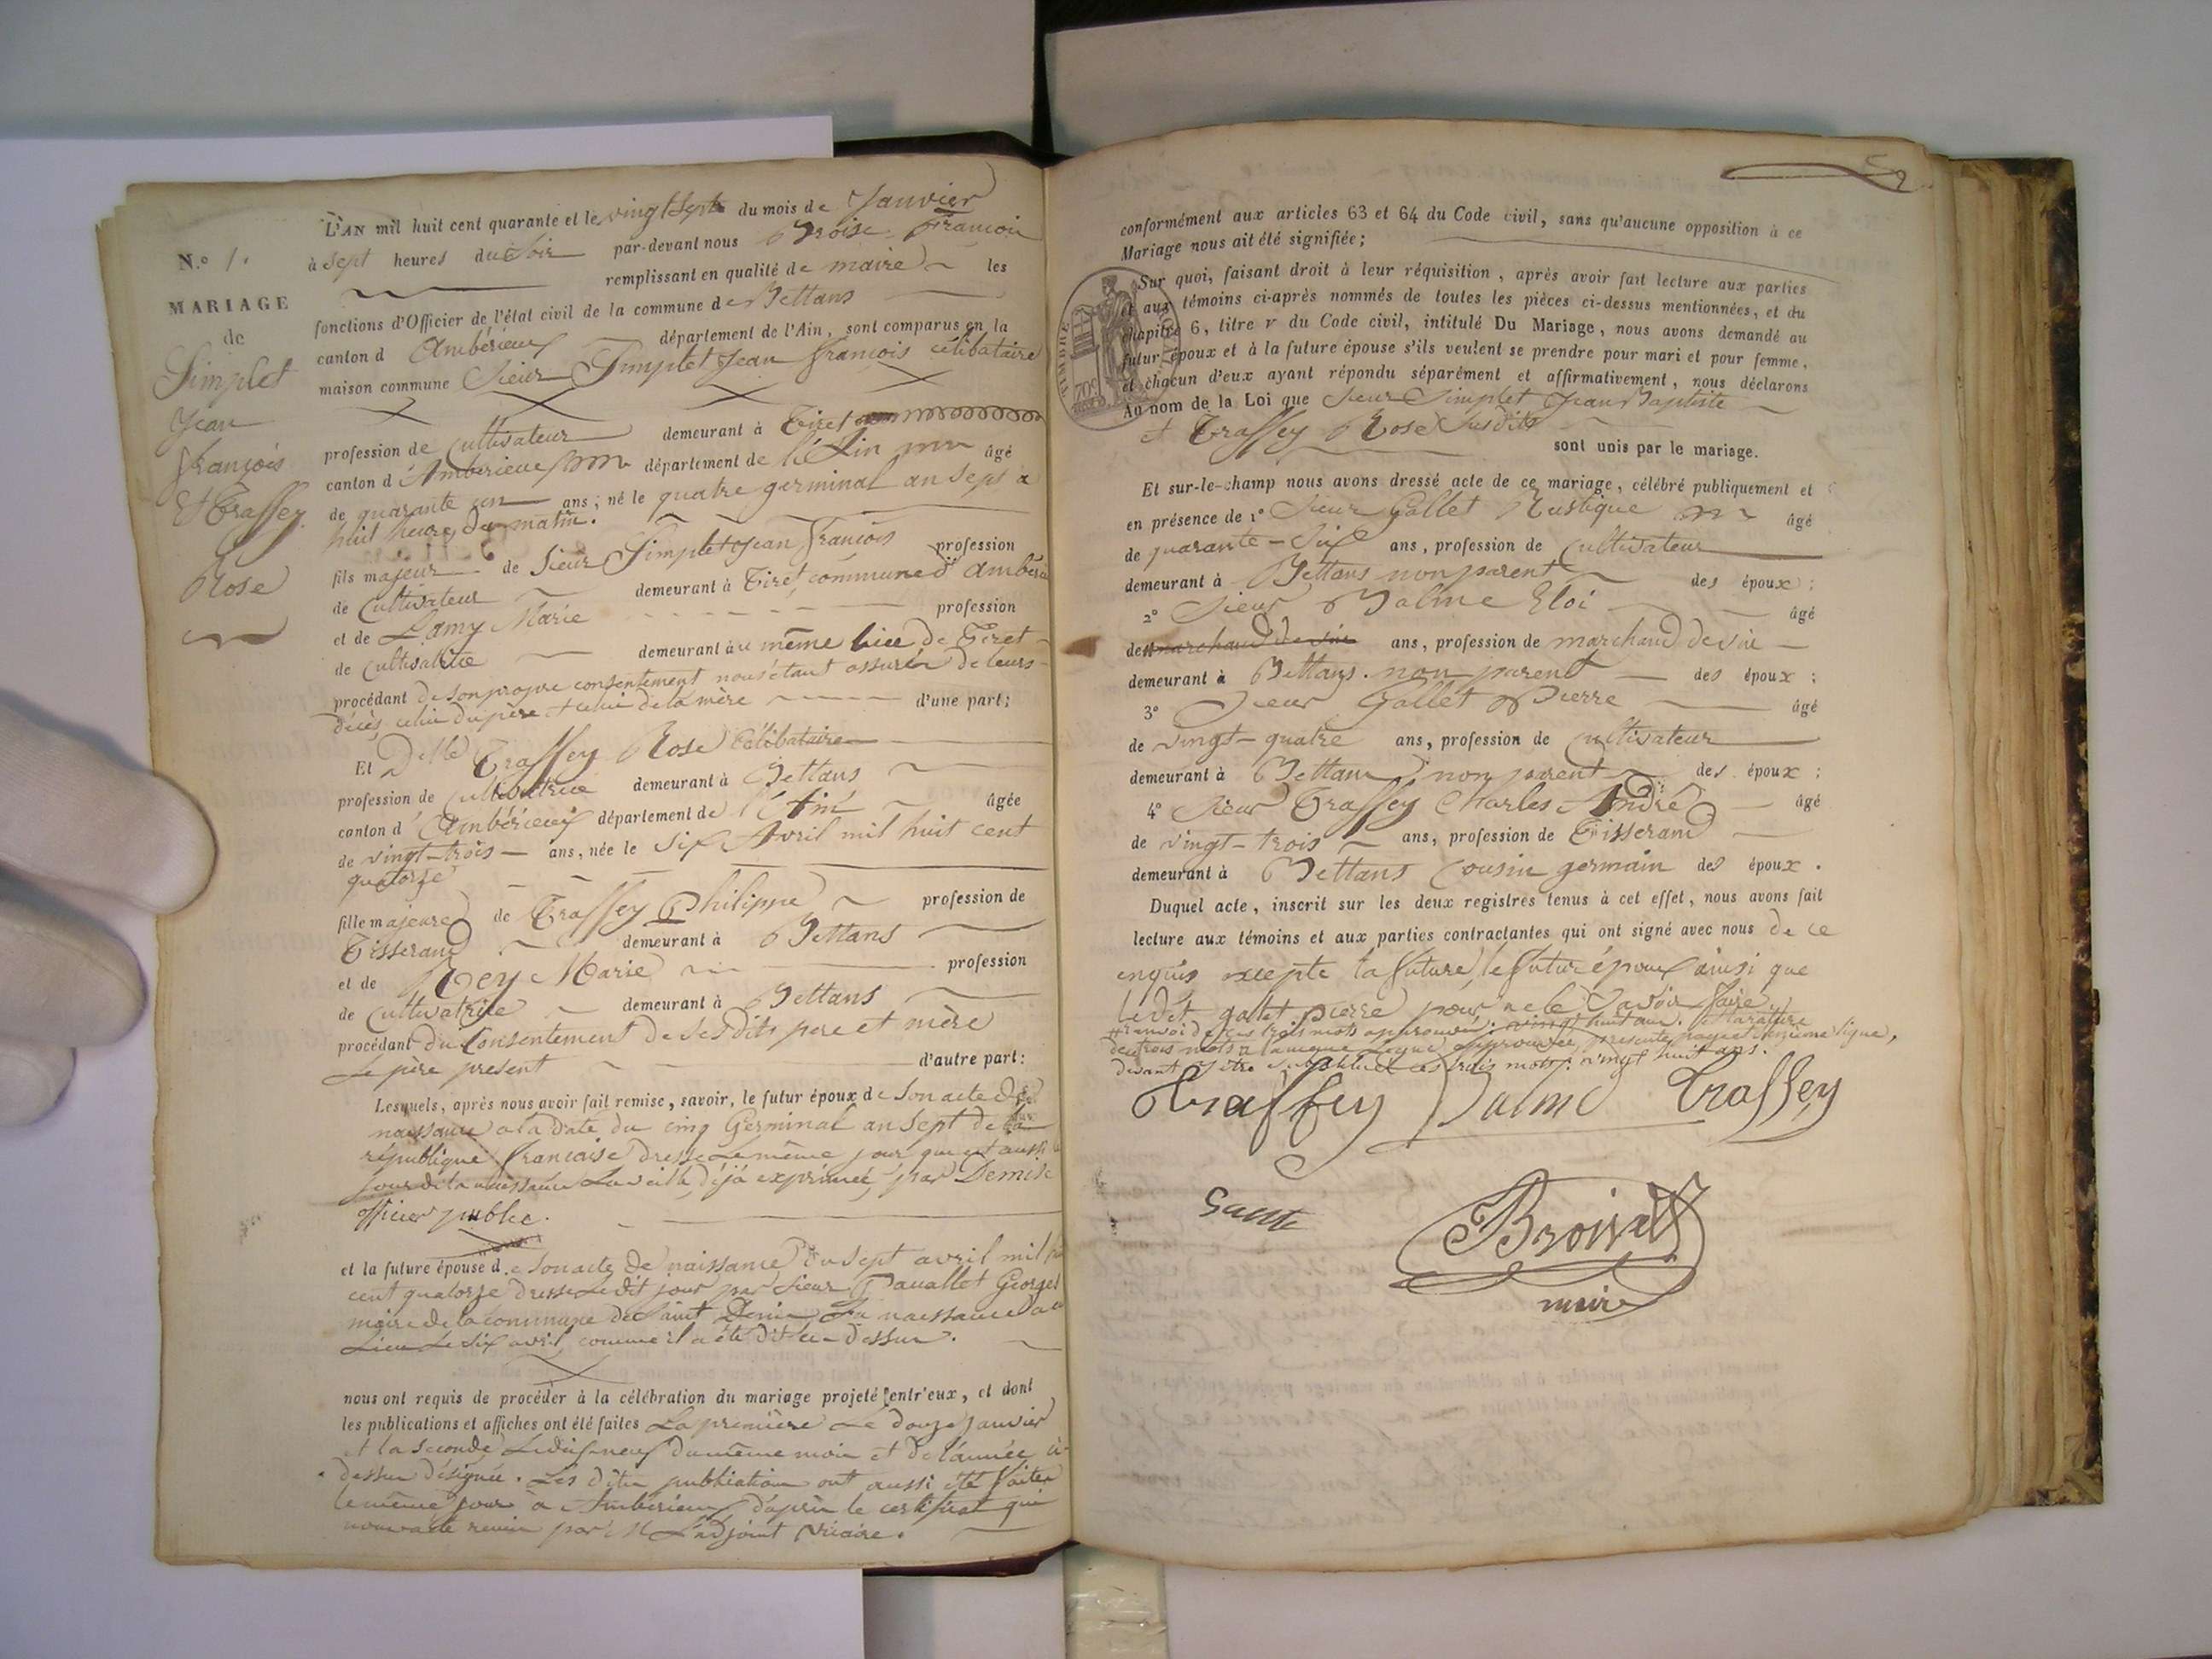 N.o 1.
MARIAGE
de
Simplet
Jean
françois
Et Traffey
Rose
L'AN mil huit cent quarante et le vingt sept du mois de Janvier
à sept heures du soir par-devant nous Broise françois
remplissant en qualité de maire les
fonctions d'Officier de l'état civil de la commune de Bettans
canton d'Ambérieux département de l'Ain, sont comparus en la
maison commune Sieur Simplet Jean françois célibataire
profession de Cultivateur demeurant à Tiret
canton d'Ambérieux département de l'Ain âgé
de quarante un ans; né le quatre germinal an sept à
huit heures du matin.
fils majeur de Sieur Simplet Jean françois profession
de Cultivateur demeurant à Tiret commune d'Ambérieu
et de Lamy Marie profession
de cultivatrice demeurant au même lieu de Tiret
procédant de son propre consentement nous étant assuré de leurs
décès, celui du père et celui de la mère d'une part;
Et Delle Traffey Rose Célibataire
profession de Cultivatrice demeurant à Bettans
canton d'Ambérieux département de l'Ain âgée
de vingt-trois ans, née le Six Avril mil huit cent
quatorze
fille majeure de Traffey Philippe profession de
Tisserand demeurant à Bettans
et de Rey Marie profession
de Cultivatrice demeurant à Bettans
procédant du Consentement de ses dits pere et mère
Le père présent d'autre part:
Lesquels, après nous avoir fait remise, savoir, le futur époux de Son acte de
naissance a la date du cinq Germinal an Sept de la
république francaise dressé Le même jour que est aussi
jour de la naissance La veille déjà exprimée, par Demise
officier public.
et la future épouse de Son acte de naissance du sept avril mil
cent quatorze dressé Le dit jour par Sieur Georges
maire de la commune de Saint Denis La naissance a eu
Lieu Le Six avril, comme il a été dit ci-dessus.
nous ont requis de procéder à la célébration du mariage projeté entr'eux, et dont
les publications et affiches ont été faites La première Le douze Janvier
et la seconde Le dix-neuf du même mois et de l'année ci-
dessus désignée. Les dites publications ont aussi été faites
le même jour à Ambérieux d'après le certificat qui
par M. L'adjoint
2
conformément aux articles 63 et 64 du Code civil, sans qu'aucune opposition à ce
Mariage nous ait été signifiée;
TIMBRE ROYAL
Sur quoi, faisant droit à leur réquisition, après avoir fait lecture aux parties
et aux témoins ci-après nommés de toutes les pièces ci-dessus mentionnées, et du
chapitre 6, titre V du Code civil, intitulé Du Mariage, nous avons demandé au
futur époux et à la future épouse s'ils veulent se prendre pour mari et pour femme,
et chacun d'eux ayant répondu séparément et affirmativement, nous déclarons
Au nom de la Loi que Sieur Simplet Jean Baptiste
et Traffey Rose Susdits
sont unis par le mariage.
Et sur-le-champ nous avons dressé acte de ce mariage, célébré publiquement et
en présence de 1o Sieur Gallet Rustique âgé
de quarante-Six ans, profession de Cultivateur
demeurant à Bettans non parent des époux;
2o Sieur Balme Eloi âgé
de marchand de vin ans, profession de marchand de vin
demeurant à Bettans. non parent des époux;
3o Sieur Gallet Pierre âgé
de vingt-quatre ans, profession de Cultivateur
demeurant à Bettans non parent des époux;
4o Sieur Traffey Charles André âgé
de vingt-trois ans, profession de Tisserand
demeurant à Bettans Cousin germain des époux.
Duquel acte, inscrit sur les deux registres tenus à cet effet, nous avons fait
lecture aux témoins et aux parties contractantes qui ont signé avec nous de ce
enquis excepté la future, le futur époux ainsi que
Ledit gallet pierre pour ne le Savoir faire
renvoi de trois mots approuvés: vingt huit ans. et la rature
de trois mots a ligne approuvée, presente page ligne,
devant être ces trois mots: vingt huit ans.
Traffey Balme Traffey
Broise
maire